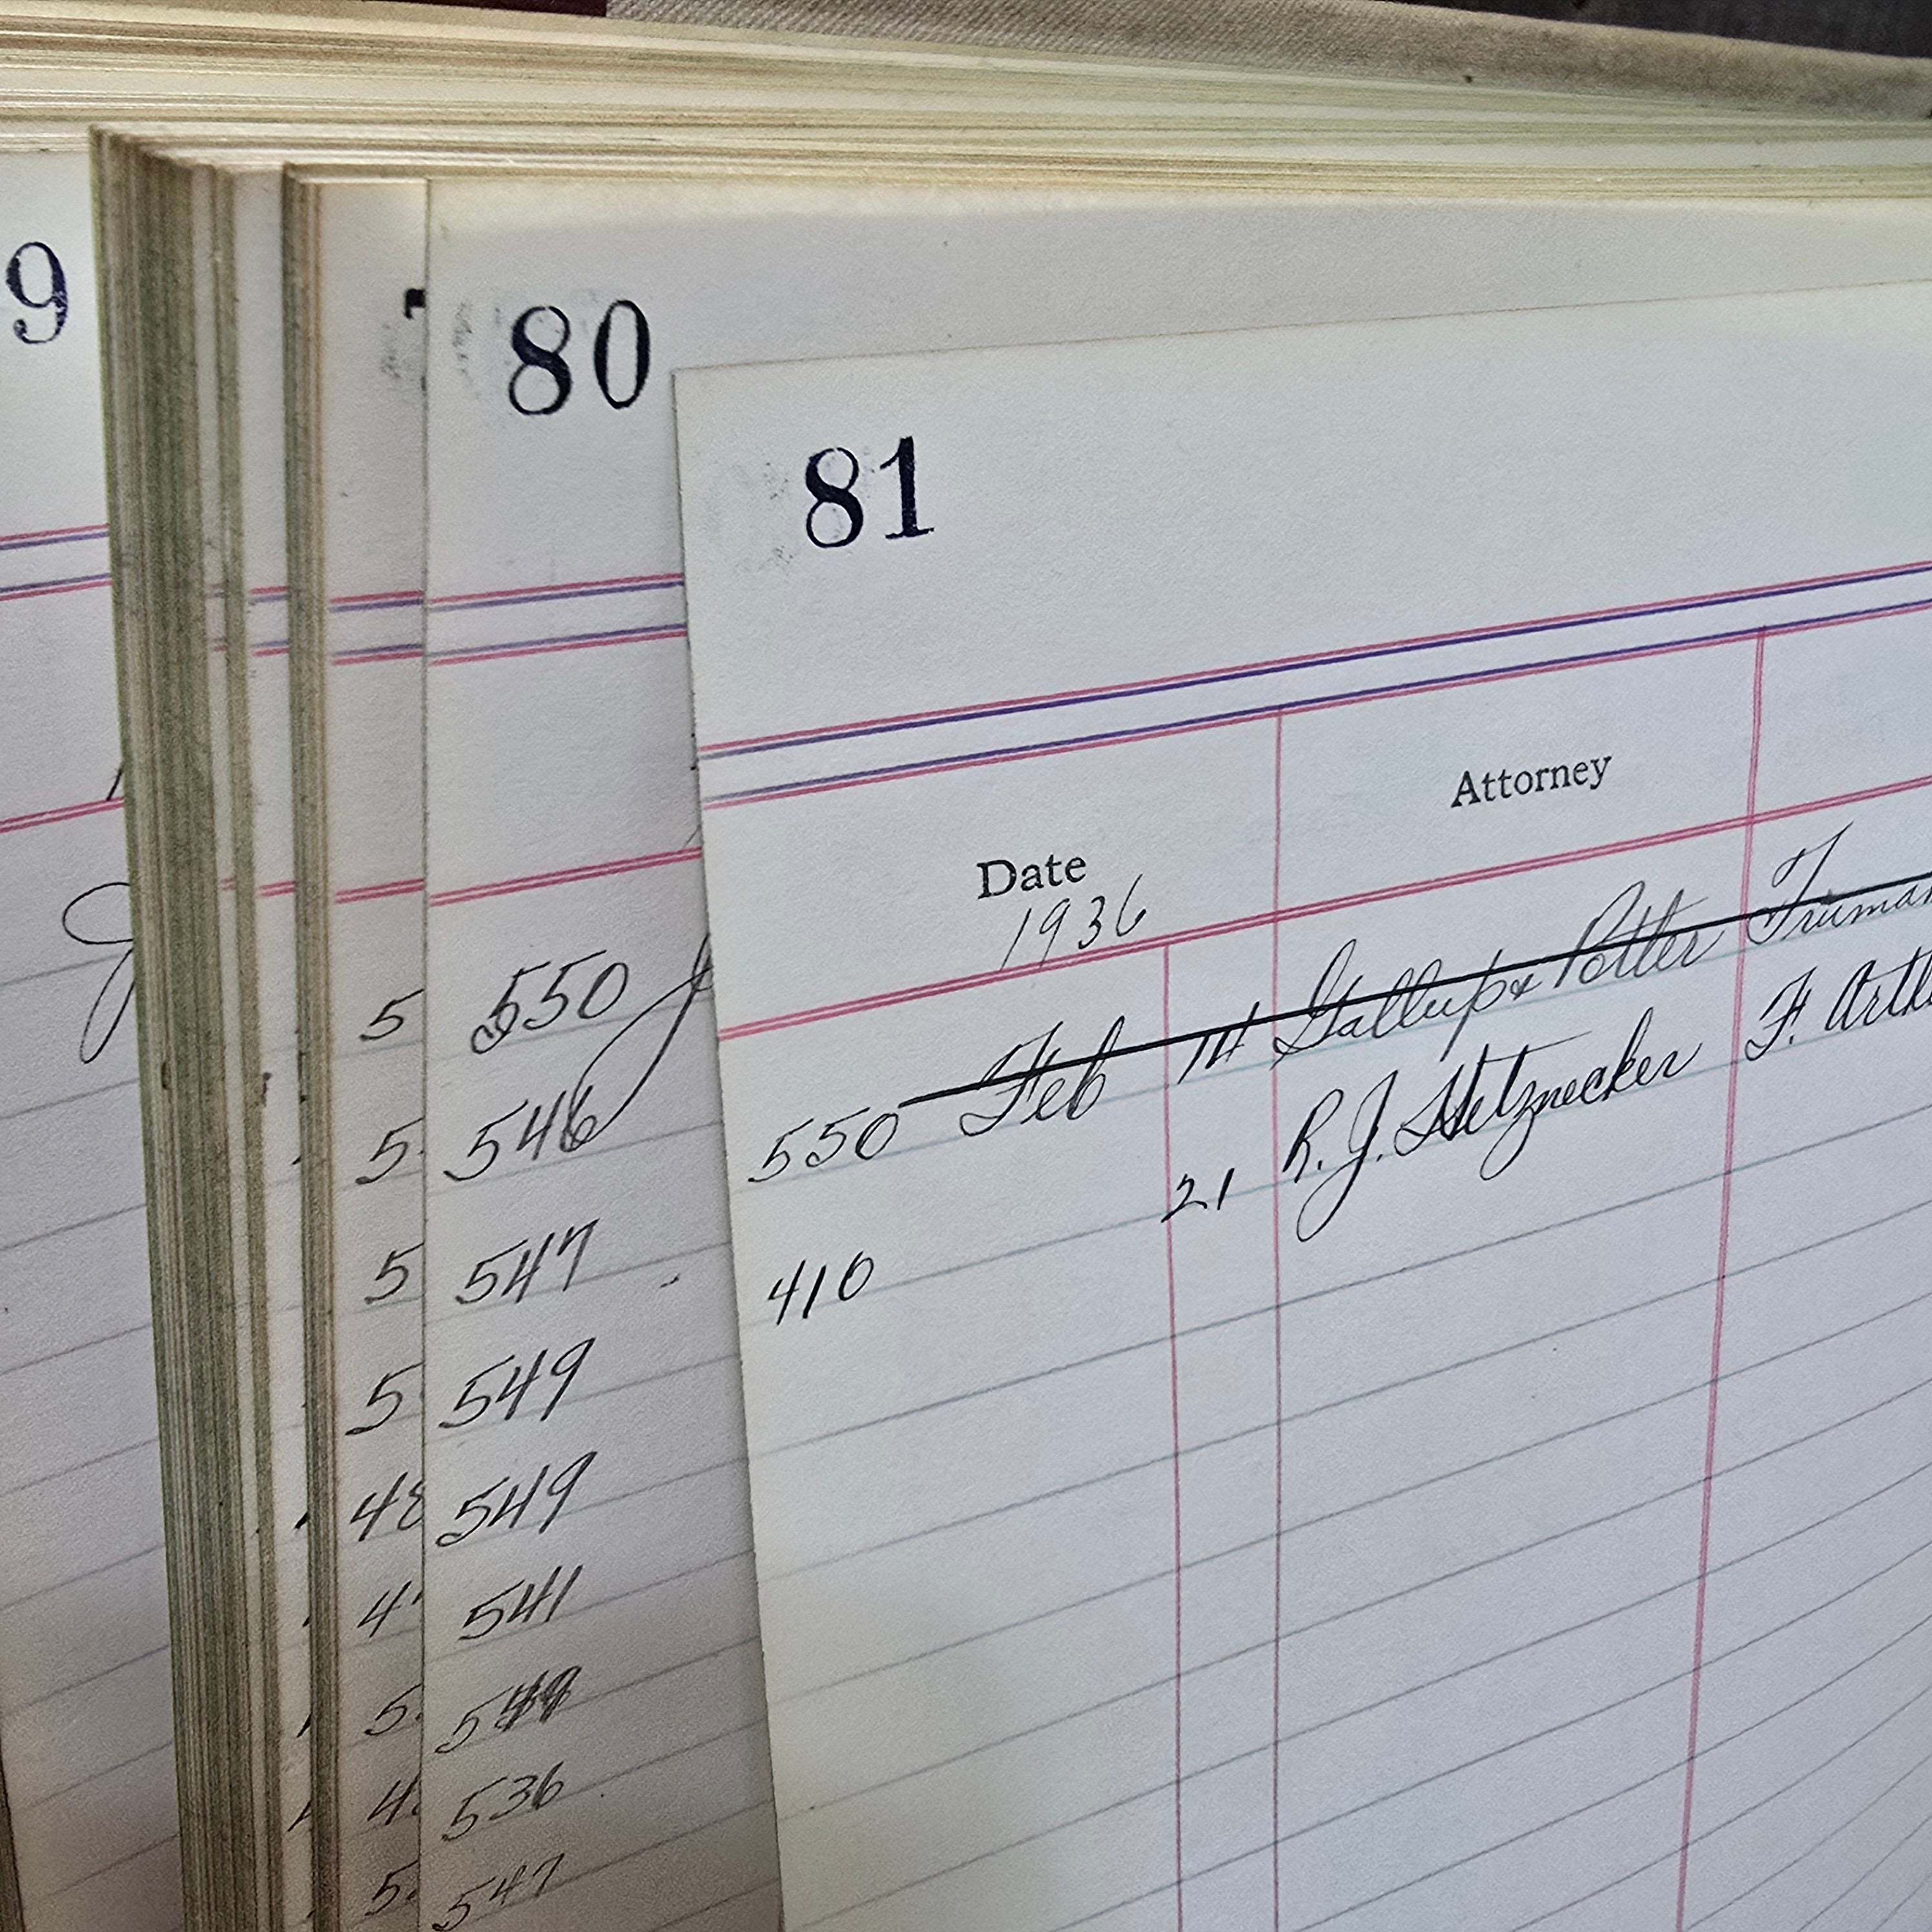 9
80
550
546
547
549
549
541
536
547
5
5
5
5
48
5
5
81
Date
Attorney
1936
550 Feb 14 Gallup & Potter Truman
410 21 R. J. Hetznecker F. Arth